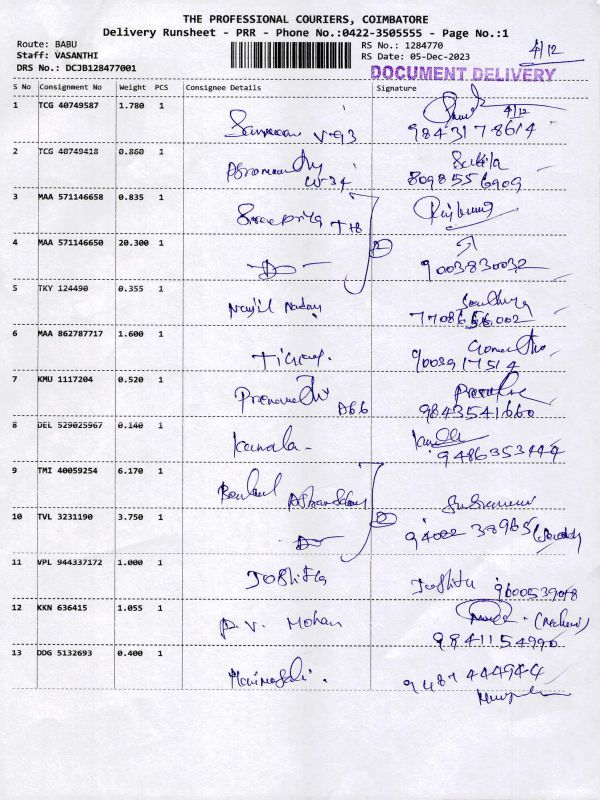 THE PROFESSIONAL COURIERS, COIMBATORE
Delivery Runsheet - PRR - Phone No.:0422-3505555 - Page No.:1
Route: BABU
Staff: VASANTHI
DRS No.: DCJB128477001
RS No.: 1284770
RS Date: 05-Dec-2023
4/12
DOCUMENT DELIVERY
S No Consignment No Weight PCS Consignee Details Signature
1 TCG 40749587 1.780 1
V-93
4/12
9843178614
2 TCG 40749418 0.860 1
8098556909
3 MAA 571146658 0.835 1
Sreepriya T+8
4 MAA 571146650 20.300 1
2
9003830032
5 TKY 124490 0.355 1
7708656002
6 MAA 862787717 1.600 1
9003917514
7 KMU 1117204 0.520 1
A66
9843541660
8 DEL 529025967 0.140 1
Kamala
9486353444
9 TMI 40059254 6.170 1
10 TVL 3231190 3.750 1
2
94022 38965
11 VPL 944337172 1.000 1
Joshita Joshita 9600539048
12 KKN 636415 1.055 1
P. V. Mohan
9841154990
13 DDG 5132693 0.400 1
9487444944